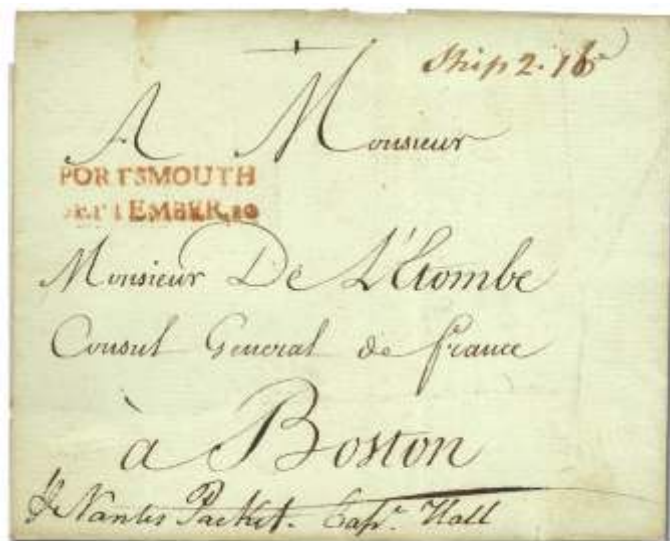 Ship 2.16
A Monsieur
PORTSMOUTH
SEPTEMBER 20
Monsieur De L'Etombe
Consul General de france
à Boston
Nantes Packet. Capn. Hall